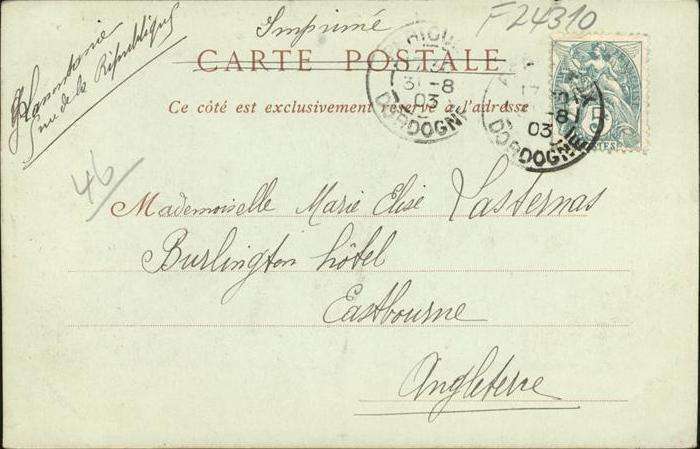 Imprimé
F24310
rue de la République
CARTE POSTALE
Ce côté est exclusivement réservé à l'adresse
31-8
03
DORDOGNE
17
-8
03
DORDOGNE
5
46
Mademoiselle Marie Elise Lasternas
Burlington hôtel
Eastbourne
Angleterre